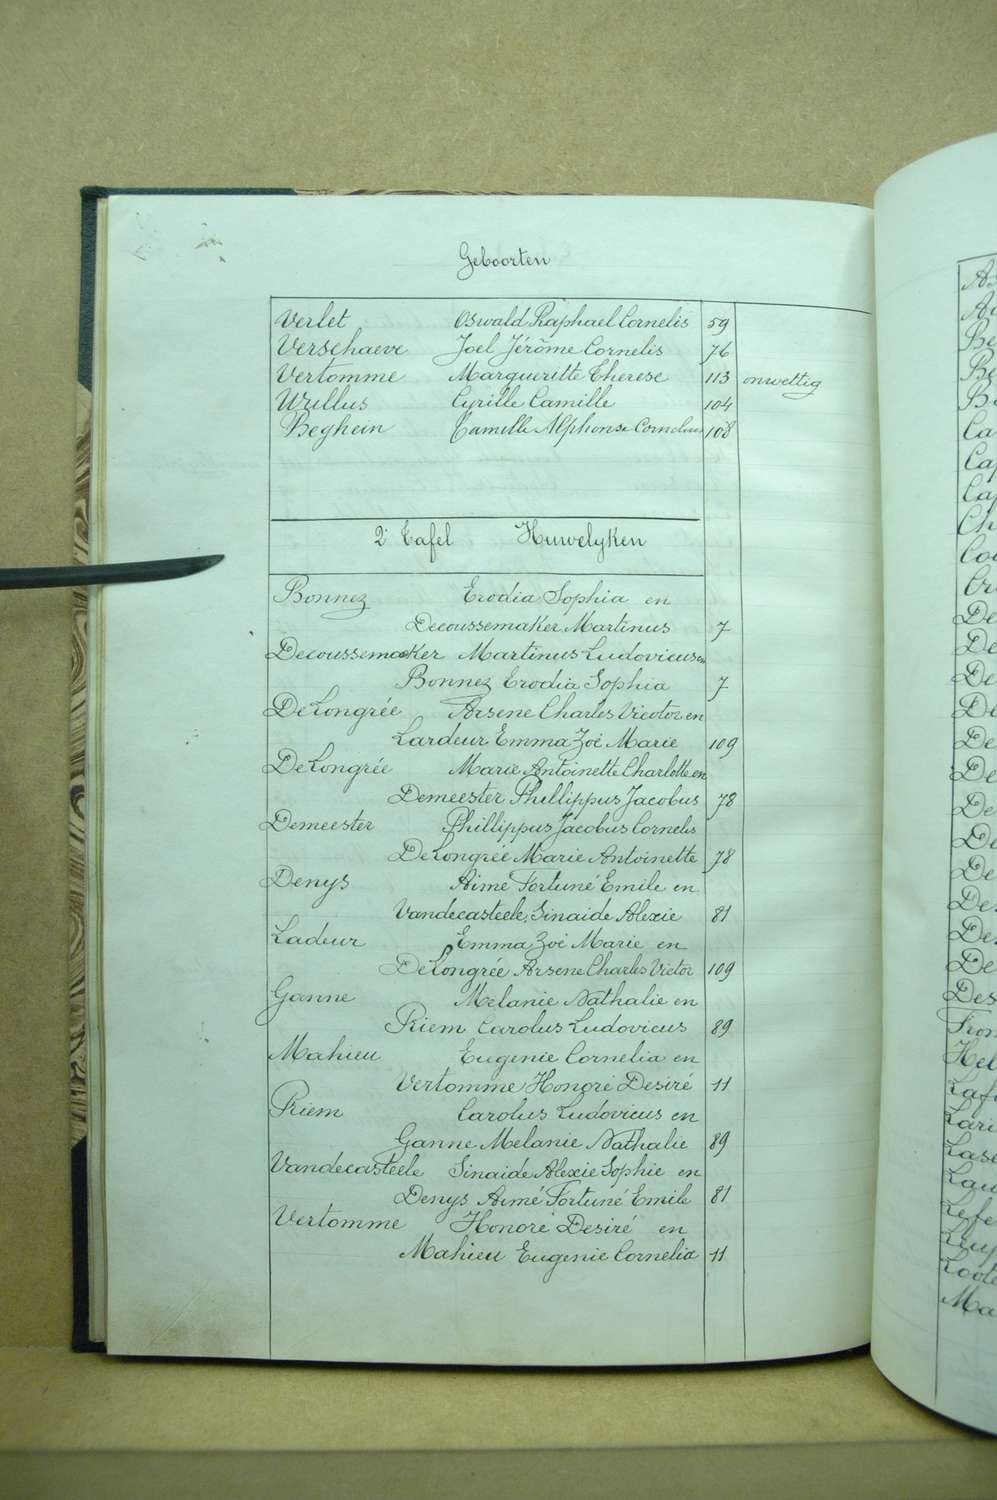 Geboorten
Verlet Oswald Raphael Cornelis 59
Verschaeve Joel Jérôme Cornelis 76
Vertomme Margueritte Therese 113 onwettig
Wullus Cyrille Camille 104
Beghein Camille Alphonse Cornelius 108
2e Tafel Huwelyken
Bonnez Erodia Sophia en
Decoussemaker Martinus 7
Decoussemaeker Martinus Ludovicus en
Bonnez Erodia Sophia 7
DeLongrée Arsene Charles Victor en
Lardeur Emma Zoé Marie 109
DeLongrée Marie Antoinette Charlotte en
Demeester Phillippus Jacobus 78
Demeester Phillippus Jacobus Cornelis
DeLongrée Marie Antoinette 78
Denys Aimé Fortuné Emile en
Vandecasteele Sinaide Alexie 81
Ladeur Emma Zoé Marie en
DeLongrée Arsene Charles Victor 109
Ganne Melanie Nathalie en
Priem Carolus Ludovicus 89
Mahieu Eugenie Cornelia en
Vertomme Honoré Desiré 11
Priem Carolus Ludovicus en
Ganne Melanie Nathalie 89
Vandecasteele Sinaide Alexie Sophie en
Denys Aimé Fortuné Emile 81
Vertomme Honoré Desiré en
Mahieu Eugenie Cornelia 11